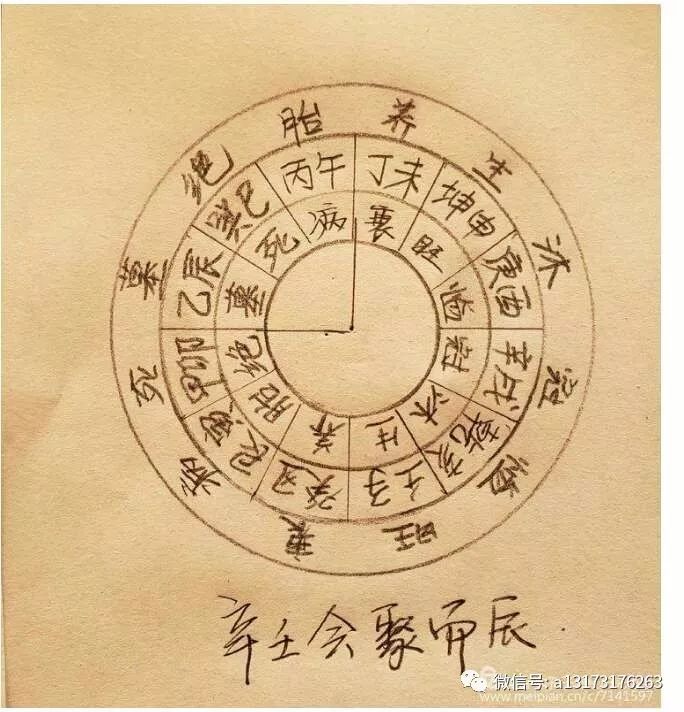 胎 养 生 沐 冠 临 旺 衰 病 死 墓 绝
丙午 丁未 坤申 庚酉 辛戌 乾亥 壬子 癸丑 艮寅 甲卯 乙辰 巽巳
病 衰 旺 临 冠 沐 生 养 胎 绝 墓 死
辛壬会聚而辰.
微信号: a13173176263
www.meipian.cn/c/7141597